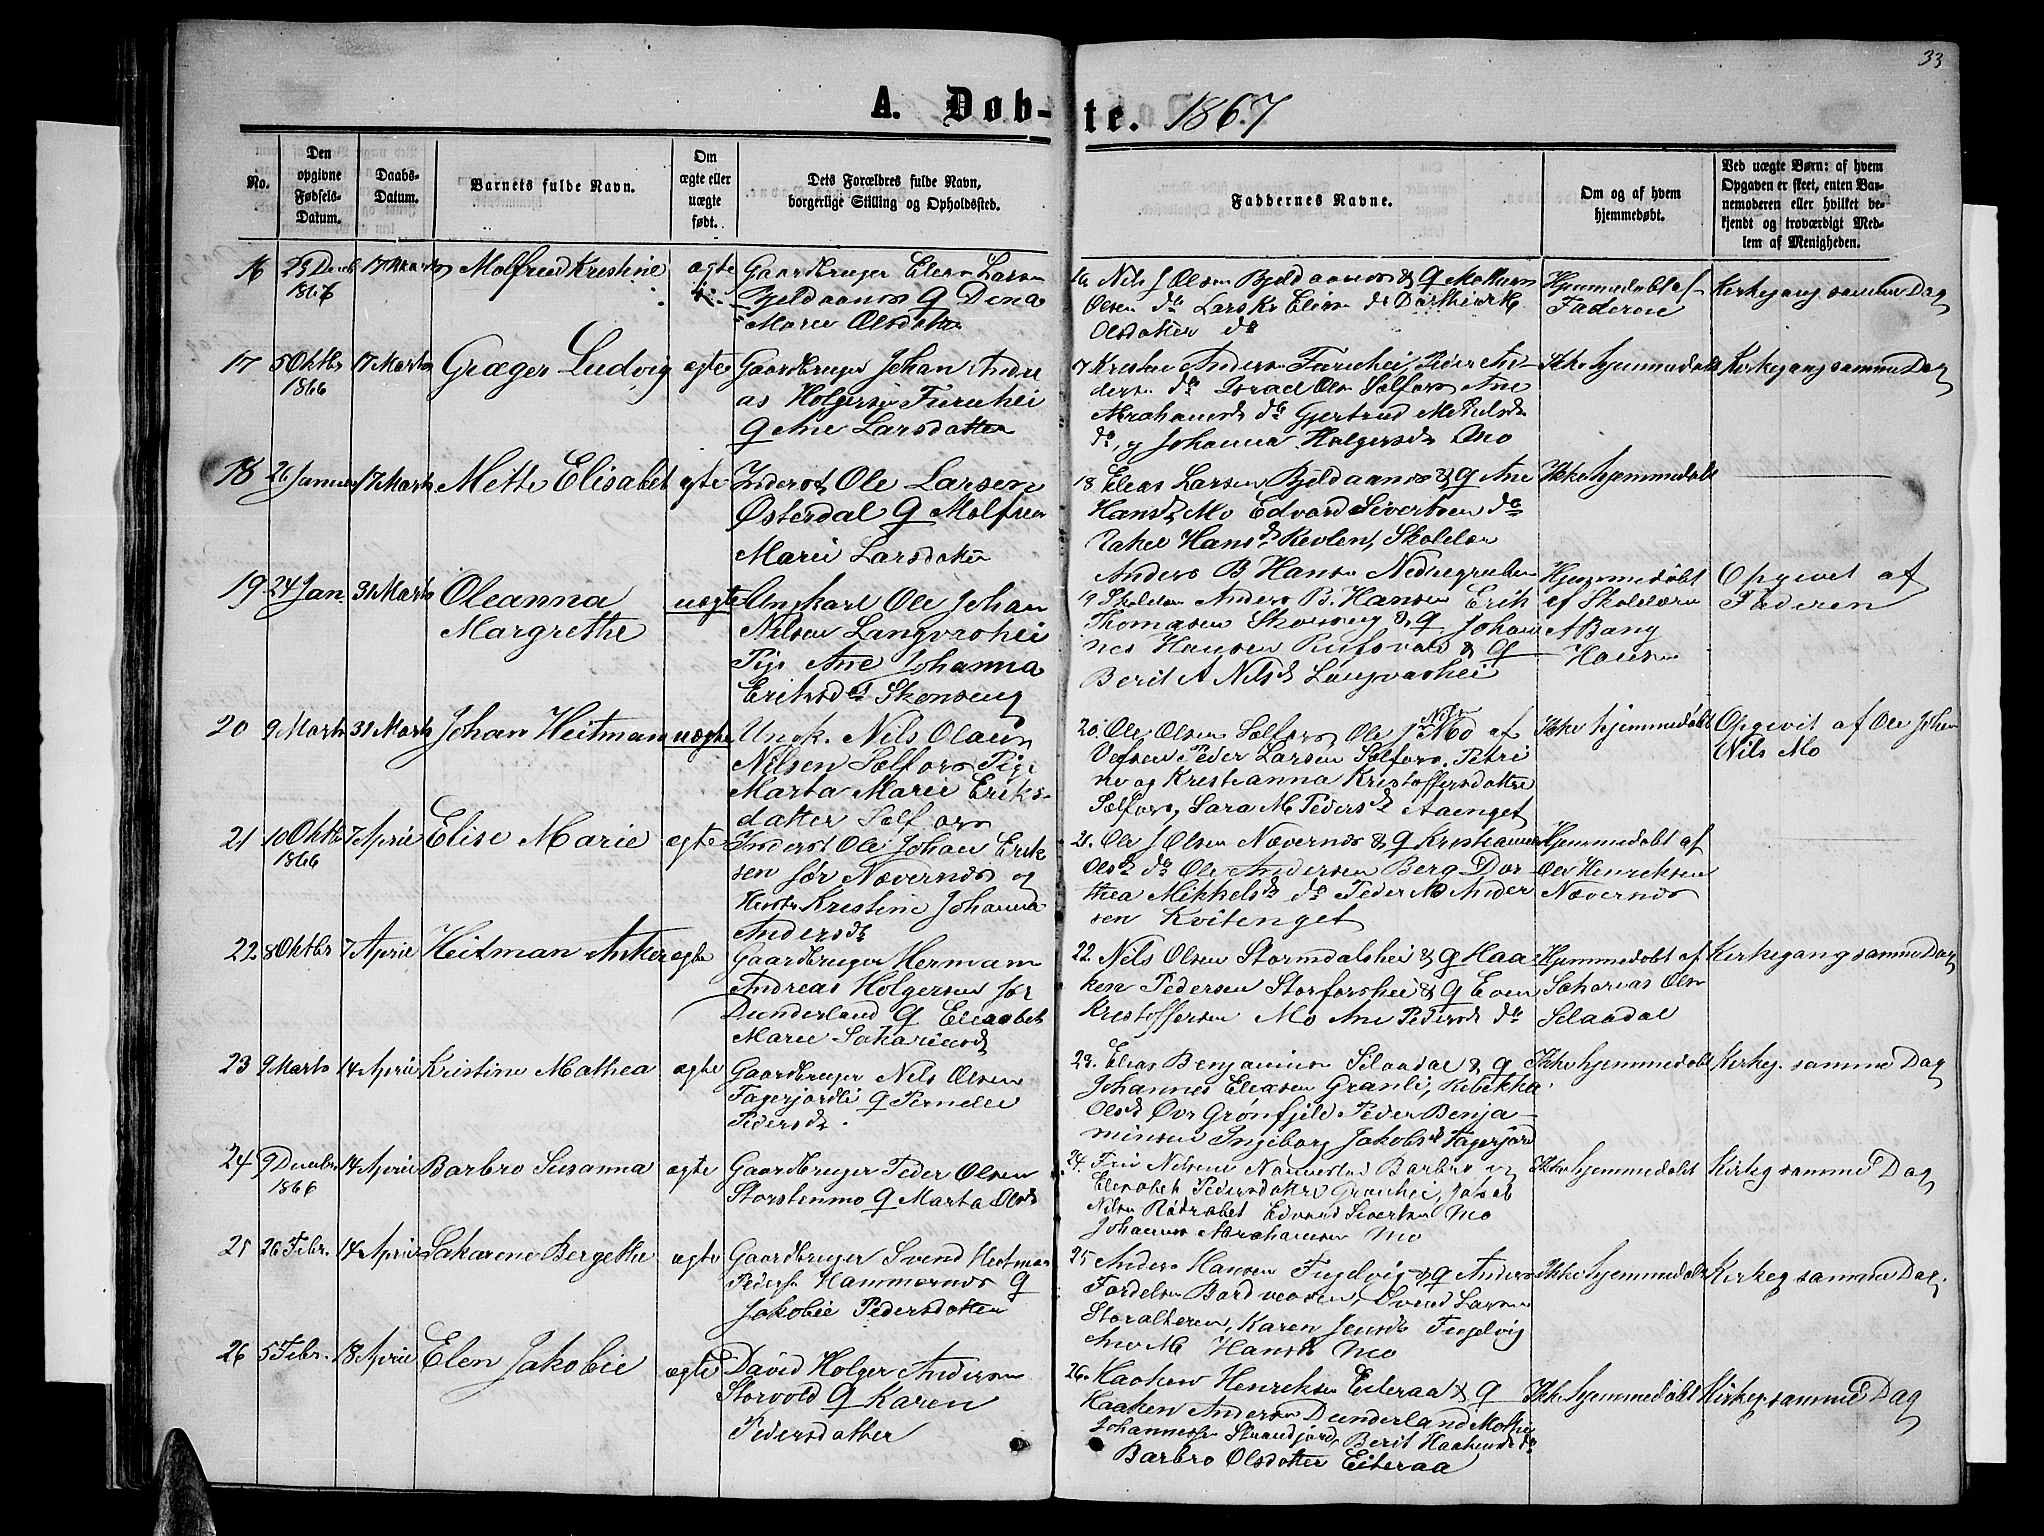 33
A. Døb-te. 1867
No.
Den opgivne Fødsels-Datum.
Daabs-Datum.
Barnets fulde Navn.
Om ægte eller uægte født.
Dets Forældres fulde Navn, borgerlige Stilling og Opholdssted.
Faddernes Navne.
Om og af hvem hjemmedøbt.
Ved uægte Børn: af hvem Opgaven er skeet, enten Barnemoderen eller hvilket vekjendt og troværdigt Medlem af Menigheden.
16 23 Decb 1866 17 Marts Molfred Kristine ægte
Gaardbruger Elias Larsen
Bjeldaanes & Dina
Marie Olsdatter
16. Nils J Olsen Bjeldaanes & Q
Olsen do Lars Kr Elias do
Olsdatter do
Hjemmedøbt af
Faderen
Kirkegang samme Dag
17 5 Oktbr 1866 17 Marts Græger Ludvig ægte
Gaardbruger Johan Andre
as Holgersen Furuhei
Q Ane Larsdatter
7 Andersen Furuhei, Peder An-
dersen do Israel Olsen Selfors Ane
Abrahamsd do Gjertrud M Nilsd
do, og Johanna Holgersd Mo
Ikke hjemmedøbt
Kirkegang samme Dag
18 26 Januar 17 Marts Mette Elisabet ægte
Inderst Ole Larsen
Østerdal Q Molfred
Marie Larsdatter
18. Elias Larsen Bjeldaanes & Q Ane
Hansd Mo Edvard Sivertsen do
Rakel Hansd Revlen, Skolelær
Anders B Hansen
Ikke hjemmedøbt
19 24 Jan. 31 Marts Oleanna
Margrethe uægte
Ungkarl Ole Johan
Nilsen Langvashei
Pige Ane Johanna
Eriksd Skonseng
19 Anders B. Hansen Erik
Thomassen Skonseng & Q Johan
nes Hansen & Q
Berit A Nilsd Langvashei
Hjemmedøbt
af Skolelærer
A Bang
Hansen
Opgivet af
Faderen
20 9 Marts 31 Marts Johan Heitman uægte
Ungk. Nils Olaus
Nilsen Selfors Pige
Marta Marie Eriks-
datter Selfors
20. Ole Olsen Selfors, Ole J Nils Mo af
Vefsen Peder Larsen Selfors. Petri
ne og Kristianna Kristoffersdatter
Selfors, Sara M Pedersd Aaenget
Ikke hjemmedøbt
Opgivet af Ole Johan
Nils Mo
21 10 Oktbr 1866 7 April Elise Marie ægte
Inderst Ole Johan Erik
sen Sør Nævernes og
Hustr Kristine Johanna
Andersd
21. Ole J Olsen Nævernes & Q Kristianna
Olsd do Ole Andersen Berg Dor
thea Mikkelsd do Peder N Ander
sen Kvitenget
Hjemmedøbt af
Ole Henriksen
Nævernes
22 8 Oktbr 7 April Heitman Anker ægte
Gaardbruger Herman
Andreas Holgersen Sør
Dunderland Q Elisabet
Marie Sakariasd
22 Nils Olsen Stormdalshei & Q Haa-
ken Pedersen Storforshei & Q Even
Kristoffersen Mo Ane Pedersd do
Hjemmedøbt af
Sakarias Olsen
Selaadal
Kirkegang samme Dag
23 9 Marts 14 April Kristine Mathea ægte
Gaardbruger Nils Olsen
Fagerjordli Q Pernelle
Pedersd.
23. Elias Benjaminsen Selaadal & Q
Johannes Eliasen Granli, Rebekka
Olsd Øvr Grønfjeld Peder Benja-
minsen Ingeborg Jakobsd Fagerjord
Ikke hjemmedøbt
Kirkeg. samme Dag
24 9 Decbr 1866 14 April Barbro Susanna ægte
Gaardbruger Peder Olsen
Storstenmo Q Marta Olsd
24. Nilsen Barbro og
Elisabet Pedersdatter Jakob
Nilsen Edvard Sivertsen Mo
Johannes Abrahamsen Mo
Ikke hjemmedøbt
Kirkeg samme Dag
25 26 Febr. 14 April Sakarine Bergethe ægte
Gaardbruger Svend Heitman
Peders. Hammernes Q
Jakobie Pedersdatter
25 Anders Hansen Fugelvig & Q Anders
Svend Larsen
Storalteren, Karen Jensd Fugelvig
M Hansd Mo
Ikke hjemmedøbt
Kirkeg samme Dag.
26 5 Febr. 18 April Elen Jakobie ægte
David Holger Andersen
Storvold Q Karen
Pedersdatter
26. Haakon Henriksen Eiteraa & Q
Haaken Andersen Dunderland
Johannessen Strandjord, Berit Haakensd do
Barbro Olsdatter Eiteraa
Ikke hjemmedøbt
Kirkeg samme Dag